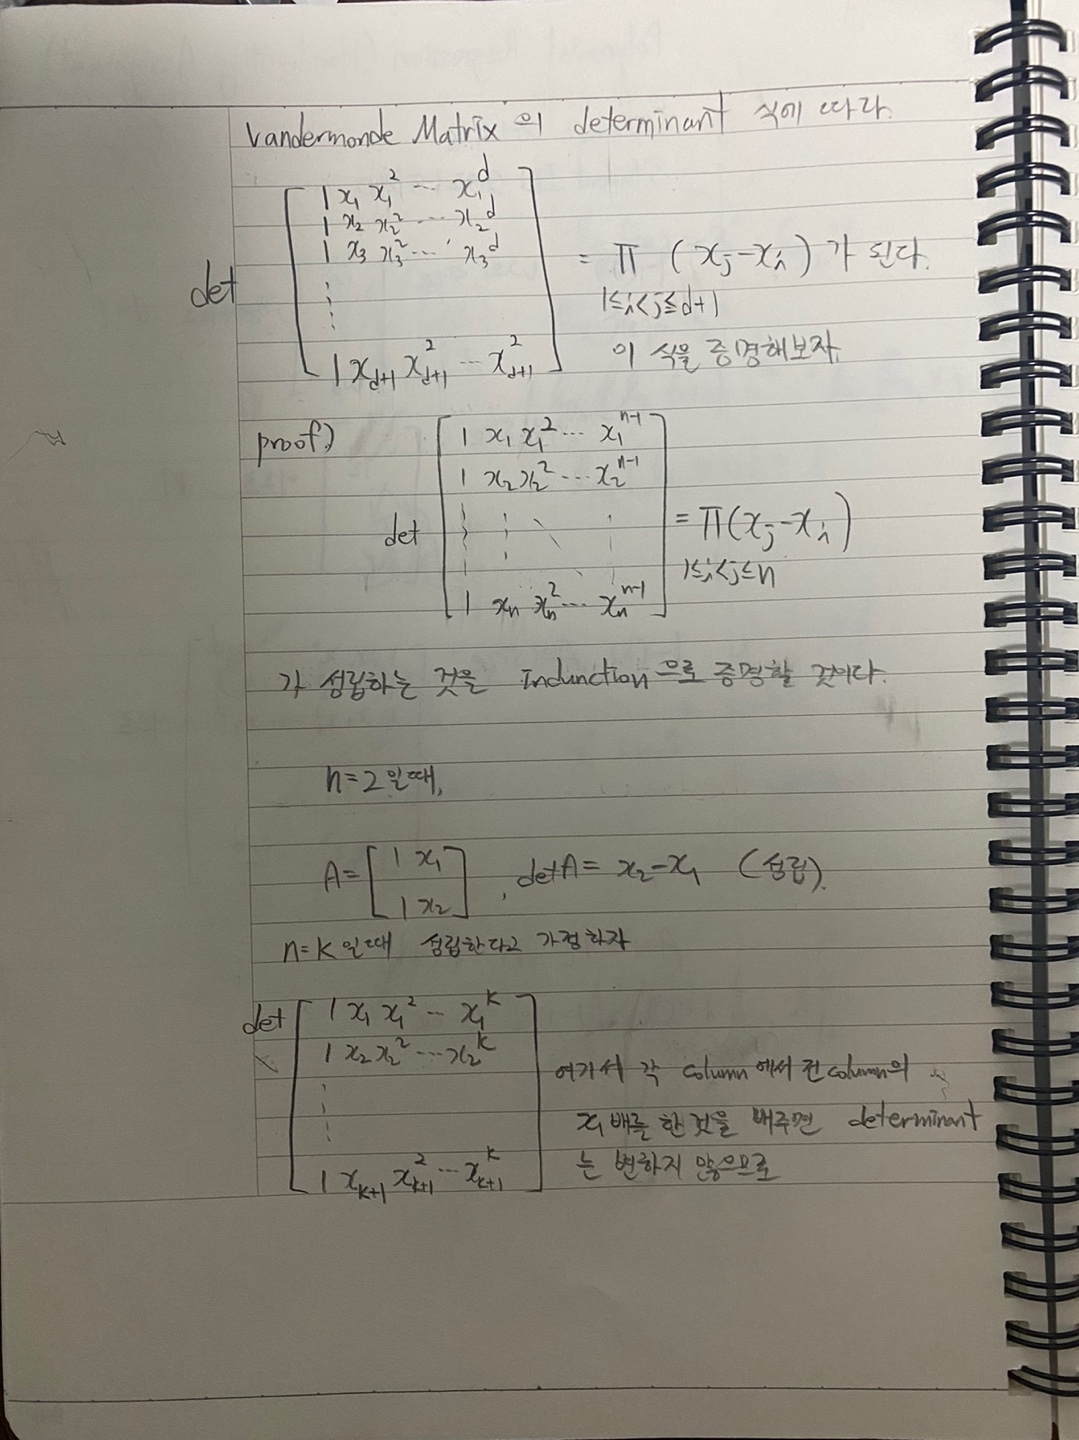 Vandermonde Matrix 의 determinant 식에 따라.
det [ 1 x₁ x₁² ⋯ x₁ᵈ
1 x₂ x₂² ⋯ x₂ᵈ
1 x₃ x₃² ⋯ x₃ᵈ
⋮
1 x_{d+1} x_{d+1}² ⋯ x_{d+1}² ] = Π (x_j - x_i) 가 된다.
1≤i<j≤d+1
이 식을 증명해보자.
proof)
det [ 1 x₁ x₁² ⋯ x₁ⁿ⁻¹
1 x₂ x₂² ⋯ x₂ⁿ⁻¹
⋮ ⋮ ⋱ ⋮
1 xₙ xₙ² ⋯ xₙⁿ⁻¹ ] = Π(x_j - x_i)
1≤i<j≤n
가 성립하는 것을 Indunction으로 증명할 것이다.
n=2일때,
A = [ 1 x₁
1 x₂ ] , detA = x₂-x₁ (성립).
n=k일때 성립한다고 가정하자
det [ 1 x₁ x₁² ⋯ x₁ᵏ
1 x₂ x₂² ⋯ x₂ᵏ
⋮
1 x_{k+1} x_{k+1}² ⋯ x_{k+1}ᵏ ]
여기서 각 column에서 전column의
x₁배를 한것을 빼주면 determinant
는 변하지 않으므로